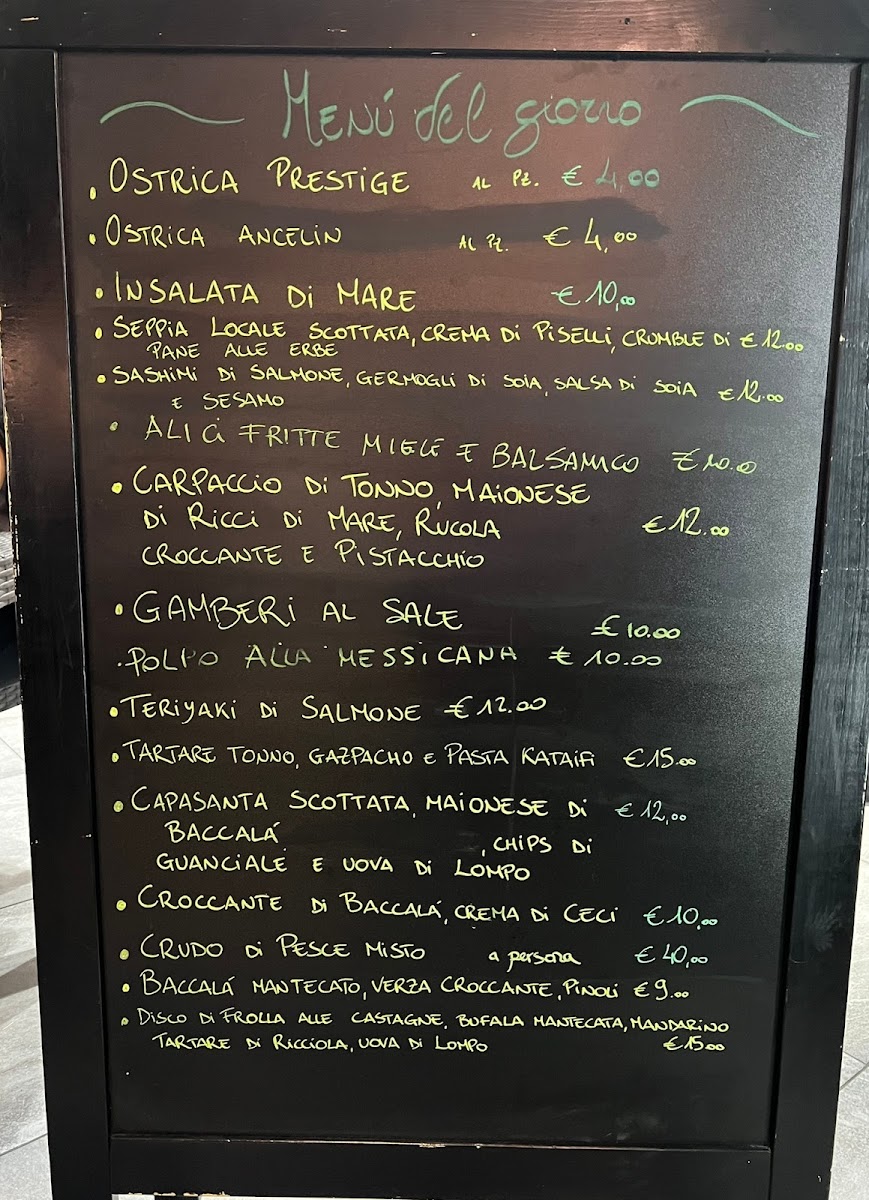 Menú del giorno
• OSTRICA PRESTIGE AL PZ. € 4,00
• OSTRICA ANCELIN AL PZ. € 4,00
• INSALATA Di MARE € 10,00
• SEPPiA LOCALE SCOTTATA, CREMA Di PiSELLi, CRUMBLE Di € 12.00
PANE ALLE ERBE
• SASHiMi Di SALMONE, GERMOGLi Di SOiA, SALSA Di SOiA € 12.00
E SESAMO
• ALICi FRITTE MIELE E BALSAMICO € 10.00
• CARPACCiO Di TONNO, MAiONESE
Di RiCCi Di MARE, RUCOLA € 12.00
CROCCANTE E PiSTACCHiO
• GAMBERi AL SALE € 10.00
• POLPO ALLA MESSICANA € 10.00
• TERiYAKi Di SALMONE € 12.00
• TARTARE TONNO, GAZPACHO E PASTA KATAiFi € 15.00
• CAPASANTA SCOTTATA, MAiONESE Di € 12,00
BACCALÁ , CHiPS Di
GUANCiALE E UOVA Di LOMPO
• CROCCANTE Di BACCALÁ, CREMA Di CECi € 10,00
• CRUDO Di PESCE MiSTO a persona € 40,00
• BACCALÁ MANTECATO, VERZA CROCCANTE, PiNOLi € 9.00
• DiSCO Di FROLLA ALLE CASTAGNE, BUFALA MANTECATA, MANDARiNO
TARTARE Di RiCCiOLA, UOVA Di LOMPO € 15.00